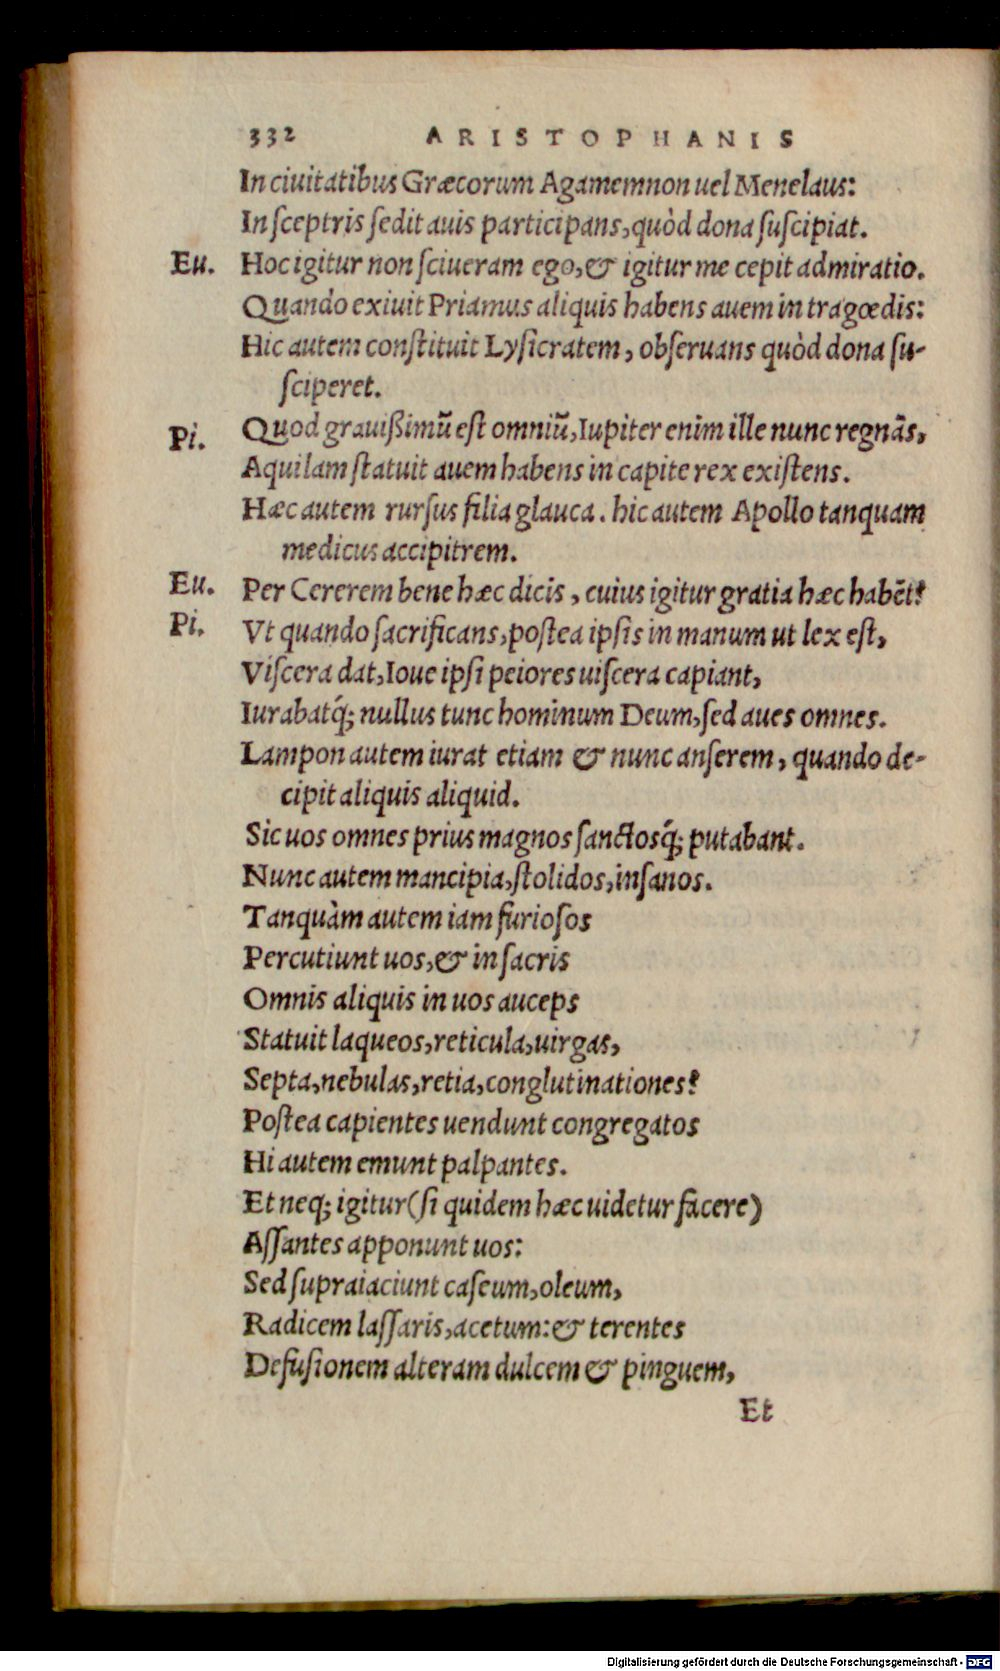 332 ARISTOPHANIS
In ciuitatibus Græcorum Agamemnon uel Menelaus:
In ſceptris ſedit auis participans, quòd dona ſuſcipiat.
Eu. Hoc igitur non ſciueram ego, & igitur me cepit admiratio.
Quando exiuit Priamus aliquis habens auem in tragœdis:
Hic autem conſtituit Lyſicratem, obſeruans quòd dona ſu-
ſciperet.
Pi. Quod grauißimū eſt omniū, Iupiter enim ille nunc regnãs,
Aquilam ſtatuit auem habens in capite rex exiſtens.
Hæc autem rurſus filia glauca. hic autem Apollo tanquam
medicus accipitrem.
Eu. Per Cererem bene hæc dicis, cuius igitur gratia hæc habẽt?
Pi. Vt quando ſacrificans, poſtea ipſis in manum ut lex eſt,
Viſcera dat, Ioue ipſi peiores uiſcera capiant,
Iurabatq́; nullus tunc hominum Deum, ſed aues omnes.
Lampon autem iurat etiam & nunc anſerem, quando de-
cipit aliquis aliquid.
Sic uos omnes prius magnos ſanctosq́; putabant.
Nunc autem mancipia, ſtolidos, inſanos.
Tanquàm autem iam furioſos
Percutiunt uos, & in ſacris
Omnis aliquis in uos auceps
Statuit laqueos, reticula, uirgas,
Septa, nebulas, retia, conglutinationes?
Poſtea capientes uendunt congregatos
Hi autem emunt palpantes.
Et neq; igitur (ſi quidem hæc uidetur facere)
Aſſantes apponunt uos:
Sed ſupraiaciunt caſeum, oleum,
Radicem laſſaris, acetum: & terentes
Defuſionem alteram dulcem & pinguem,
Et
Digitalisierung gefördert durch die Deutsche Forschungsgemeinschaft - DFG